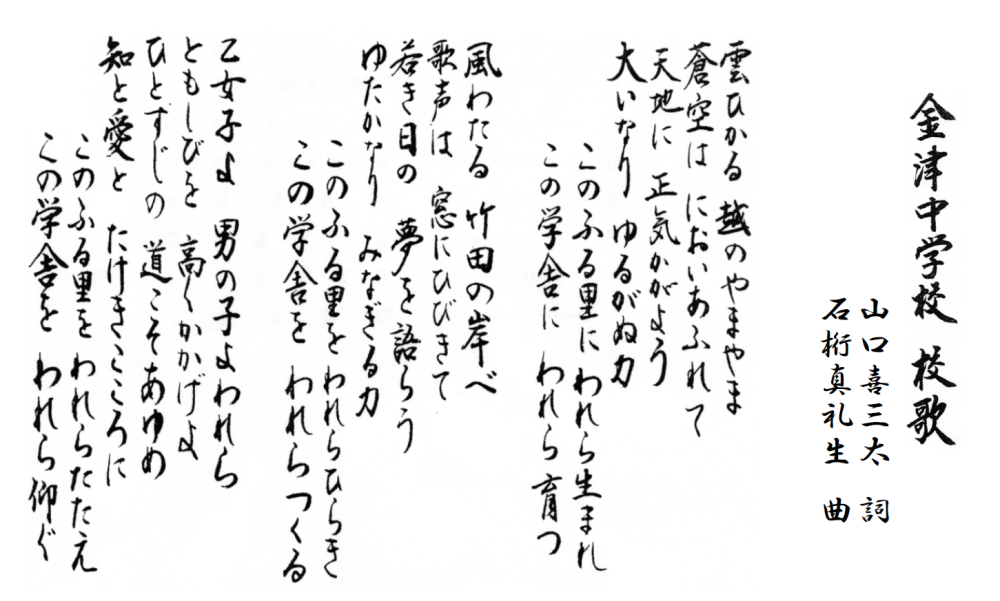 金津中学校 校歌
山口喜三太 詞
石桁真礼生 曲
雲ひかる 越のやまやま
蒼空は においあふれて
天地に 正気かがよう
大いなり ゆるがぬ力
このふる里に われら生まれ
この学舎に われら育つ
風わたる 竹田の岸べ
歌声は 窓にひびきて
若き日の 夢を語らう
ゆたかなり みなぎる力
このふる里を われらひらき
この学舎を われらつくる
乙女子よ 男の子よわれら
ともしびを 高くかかげよ
ひとすじの 道こそあゆめ
知と愛と たけきこころに
このふる里を われらたたえ
この学舎を われら仰ぐ